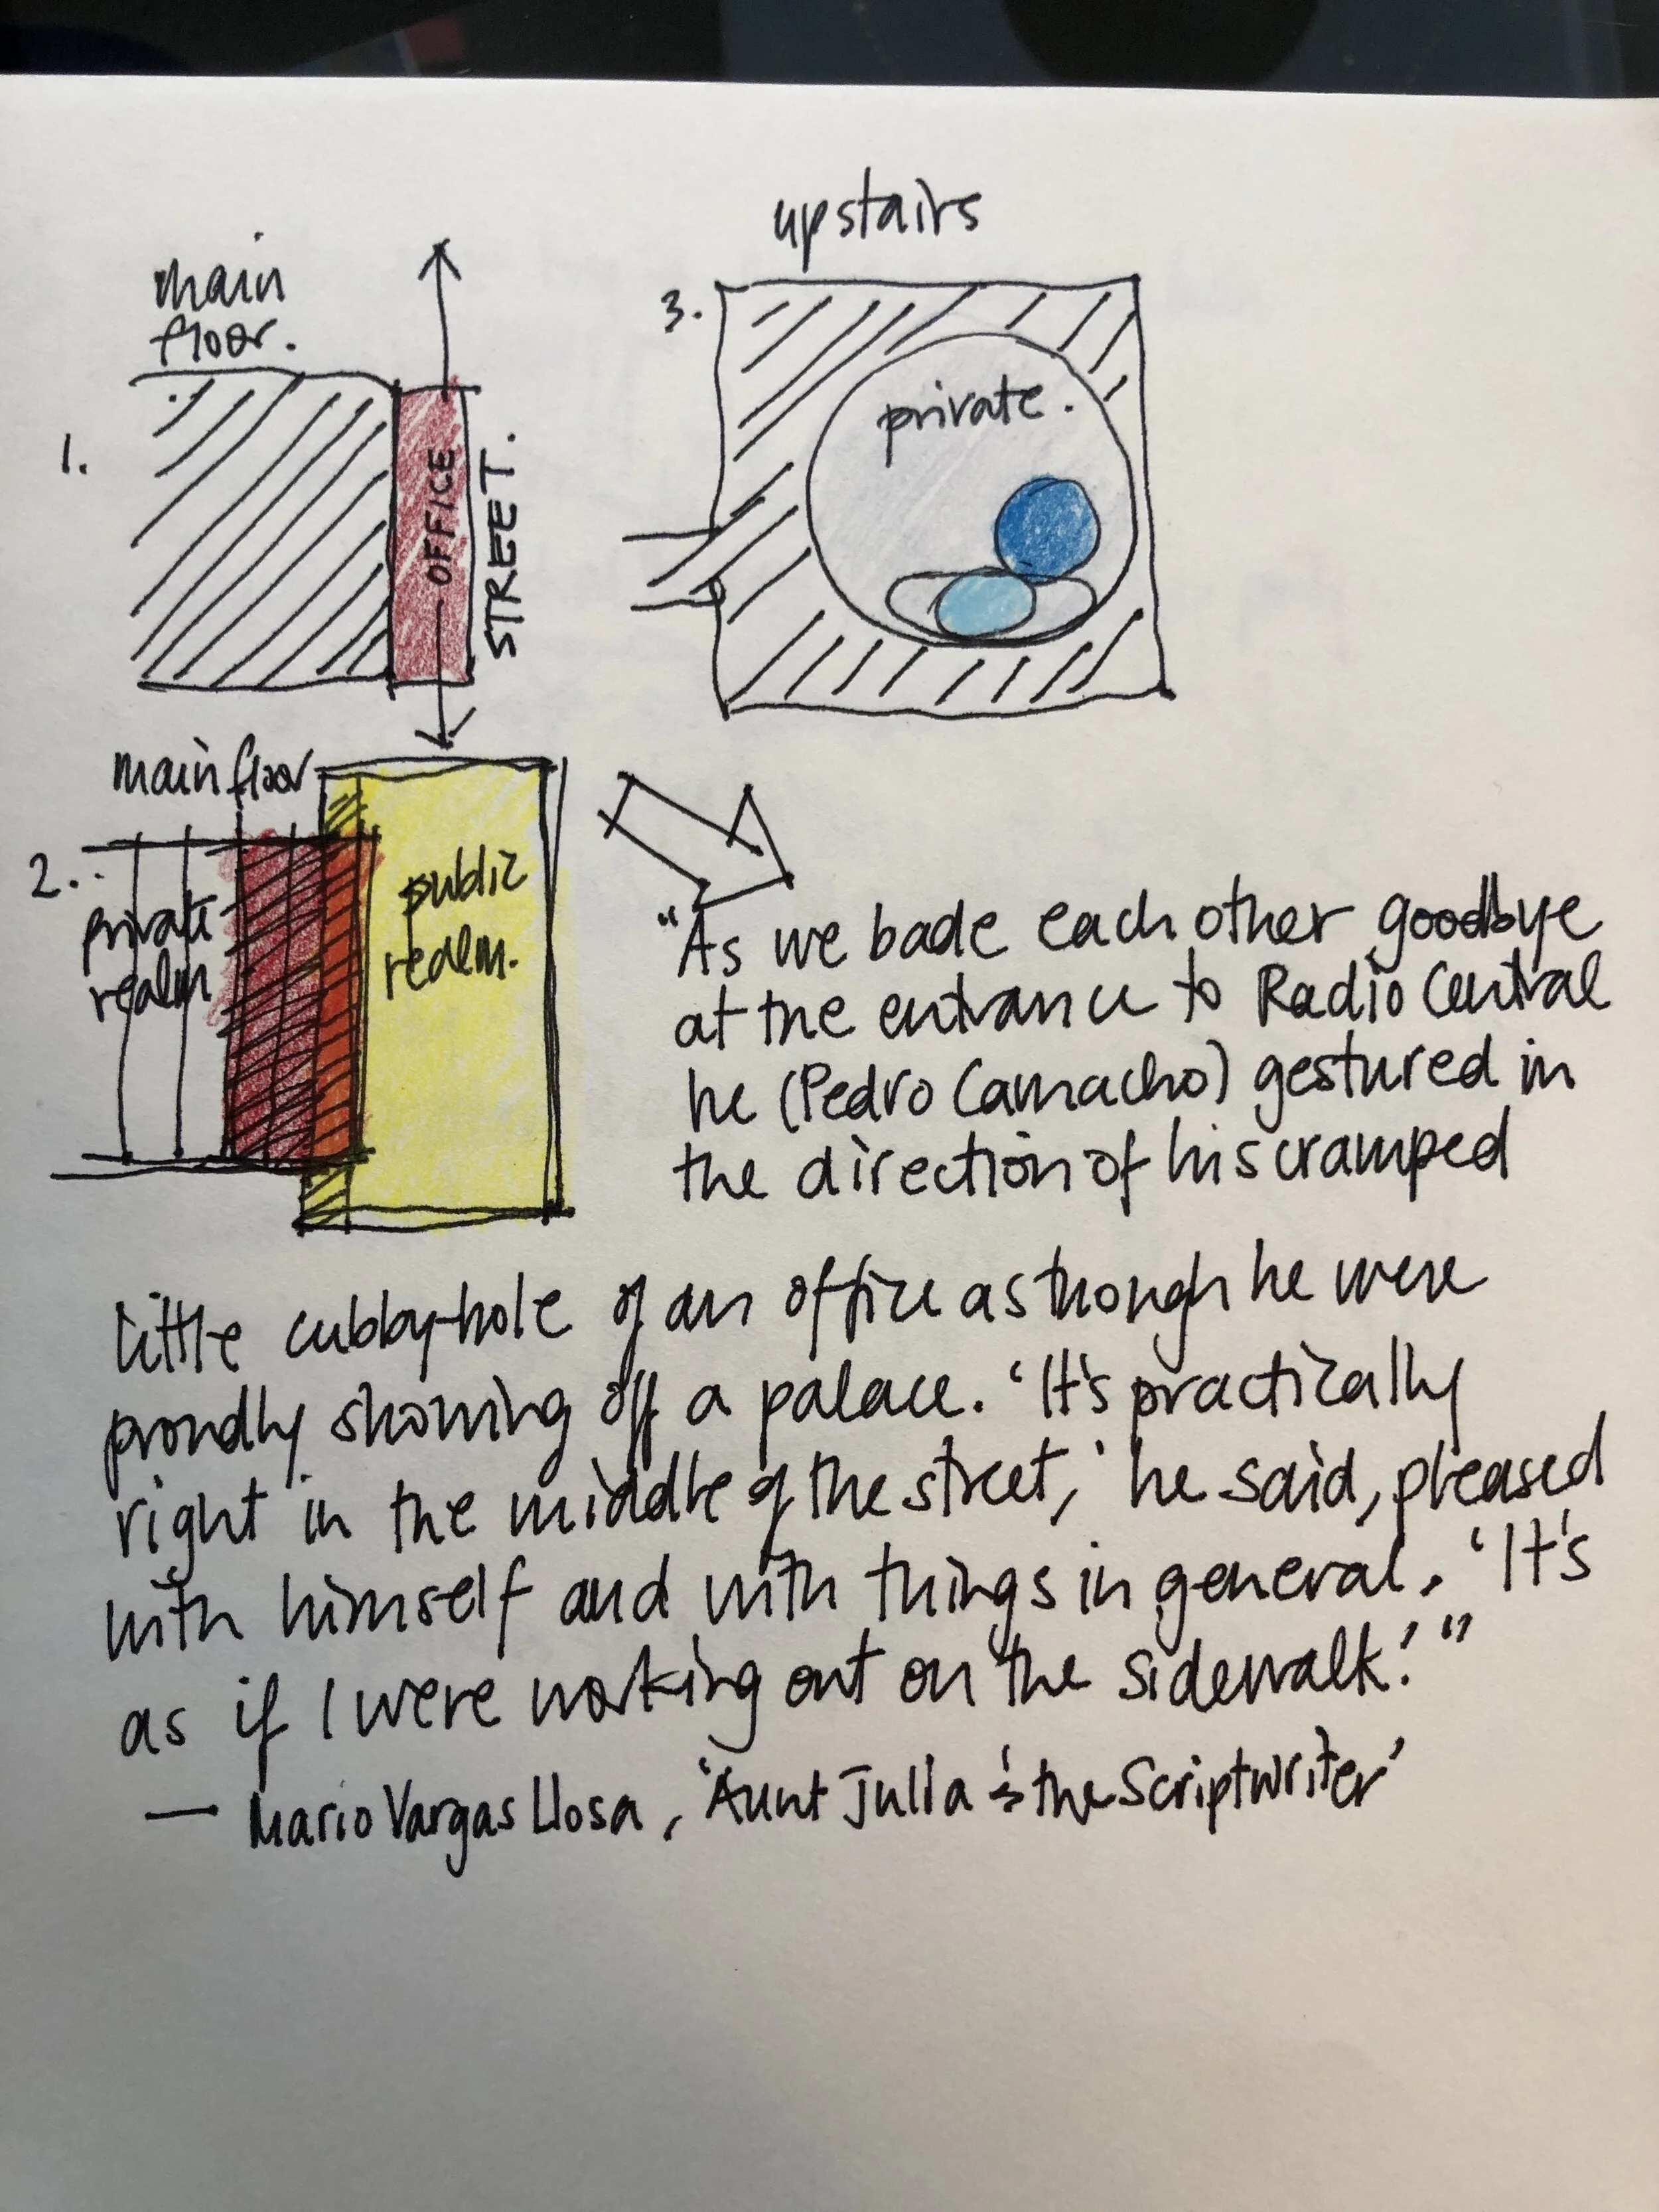 upstairs
main
floor.
3.
private.
1.
OFFICE
STREET.
main floor
2.
private
realm
public
realm.
"As we bade each other goodbye
at the entrance to Radio Central
he (Pedro Camacho) gestured in
the direction of his cramped
little cubby-hole of an office as though he were
proudly showing off a palace. 'It's practically
right in the middle of the street,' he said, pleased
with himself and with things in general. 'It's
as if I were working out on the sidewalk!'"
— Mario Vargas Llosa, 'Aunt Julia & the Scriptwriter'